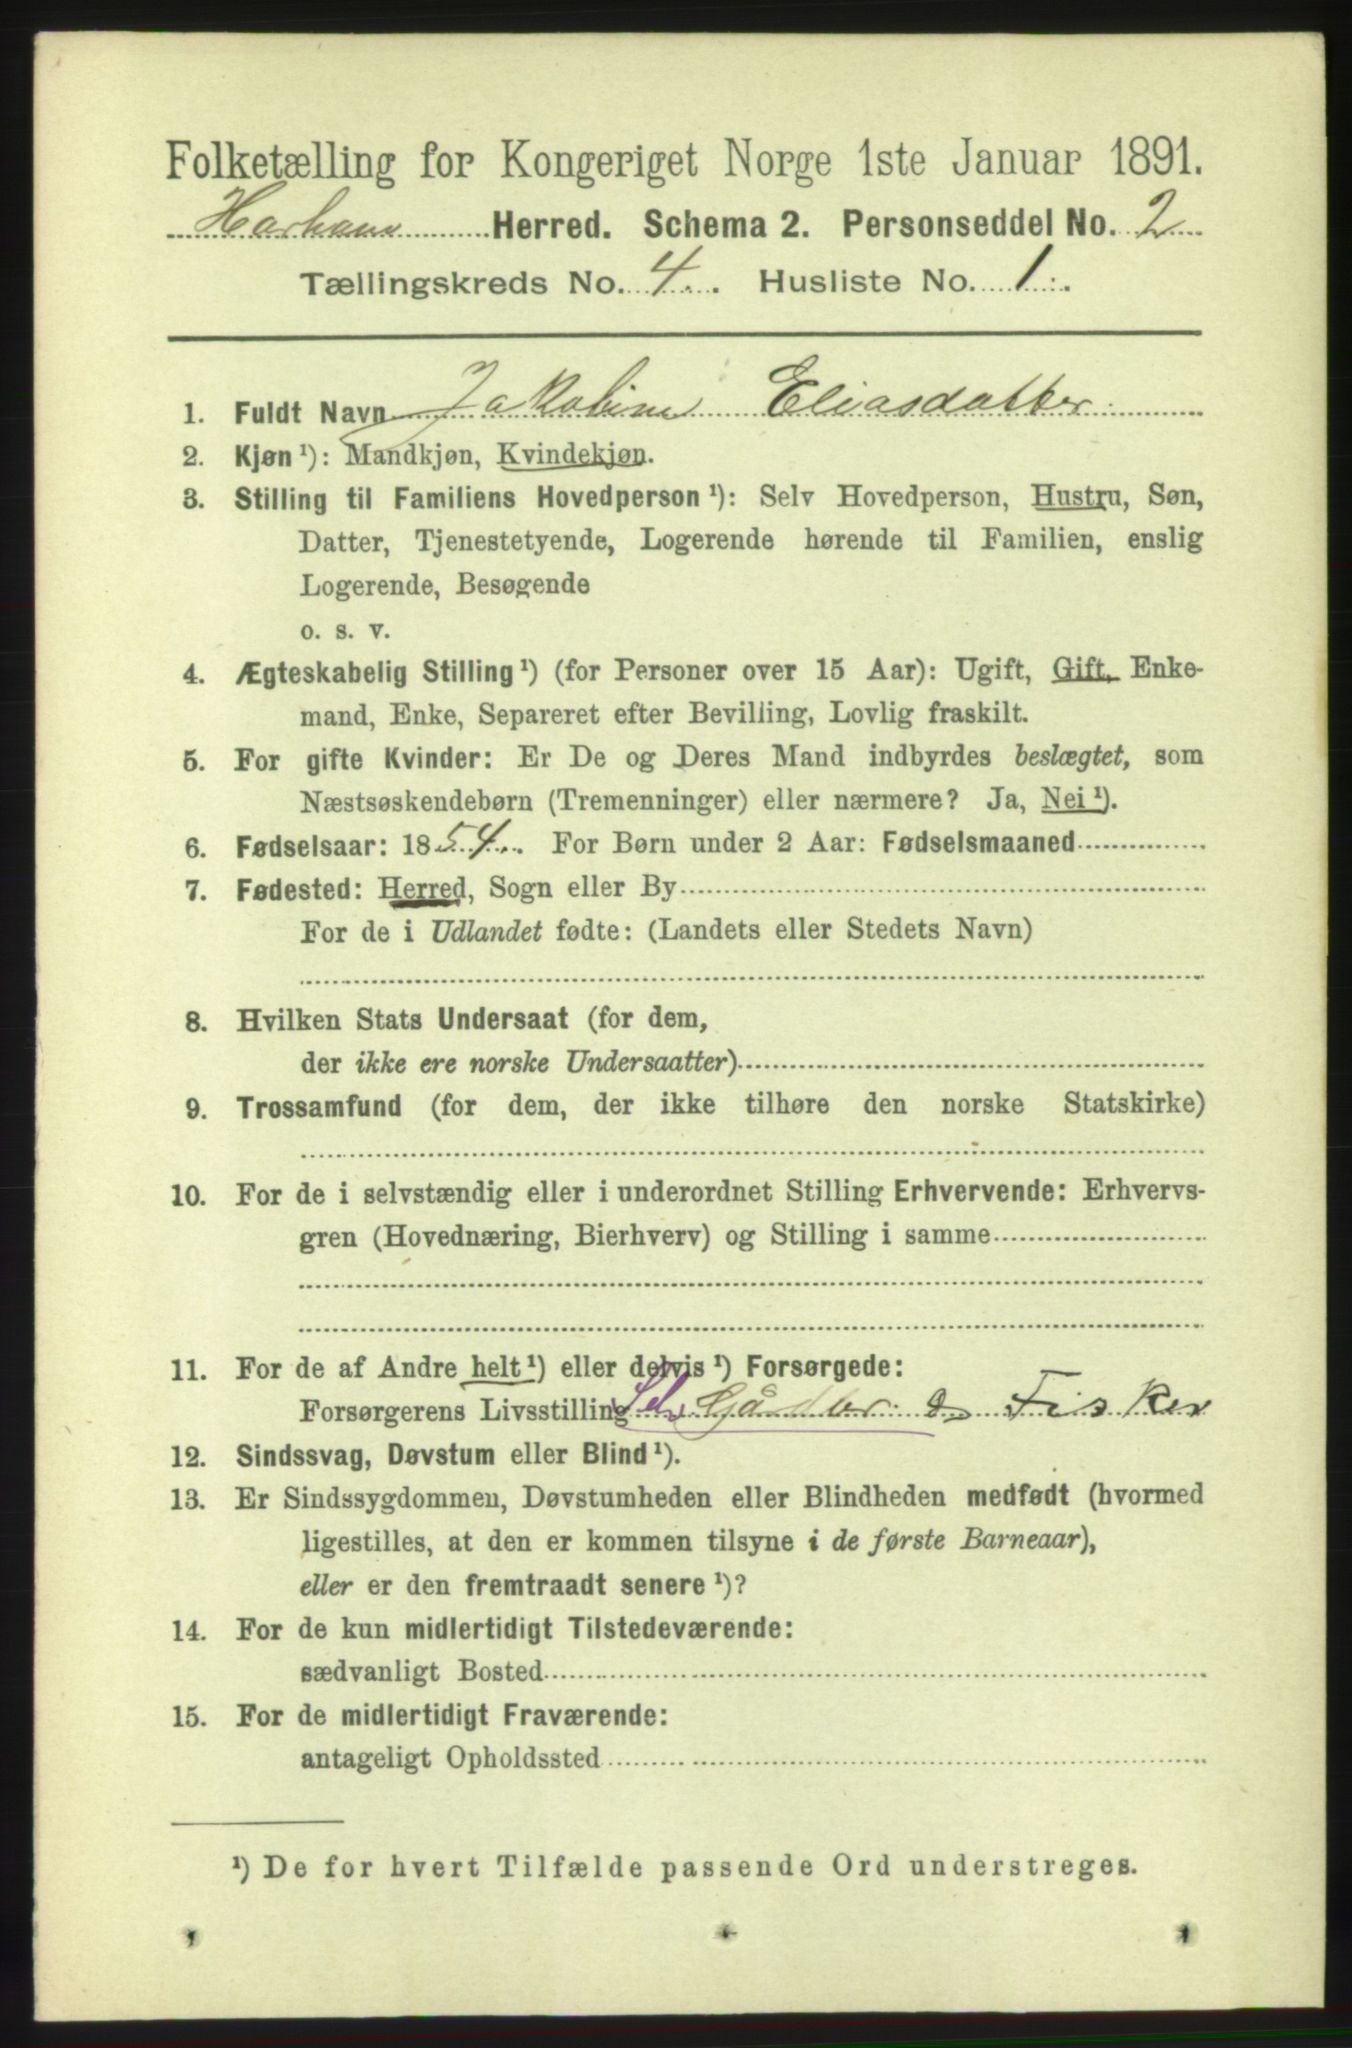 Folketælling for Kongeriget Norge 1ste Januar 1891.
Harhams Herred. Schema 2. Personseddel No. 2
Tællingskreds No. 4. Husliste No. 1.
1. Fuldt Navn Jakobine Eliasdatter
2. Kjøn ¹): Mandkjøn, Kvindekjøn.
3. Stilling til Familiens Hovedperson ¹): Selv Hovedperson, Hustru, Søn,
Datter, Tjenestetyende, Logerende hørende til Familien, enslig
Logerende, Besøgende
o. s. v.
4. Ægteskabelig Stilling ¹) (for Personer over 15 Aar): Ugift, Gift, Enke-
mand, Enke, Separeret efter Bevilling, Lovlig fraskilt.
5. For gifte Kvinder: Er De og Deres Mand indbyrdes beslægtet, som
Næstsøskendebørn (Tremenninger) eller nærmere? Ja, Nei ¹).
6. Fødselsaar: 1854. For Børn under 2 Aar: Fødselsmaaned
7. Fødested: Herred, Sogn eller By
For de i Udlandet fødte: (Landets eller Stedets Navn)
8. Hvilken Stats Undersaat (for dem,
der ikke ere norske Undersaatter)
9. Trossamfund (for dem, der ikke tilhøre den norske Statskirke)
10. For de i selvstændig eller i underordnet Stilling Erhvervende: Erhvervs-
gren (Hovednæring, Bierhverv) og Stilling i samme
11. For de af Andre helt ¹) eller delvis ¹) Forsørgede:
Forsørgerens Livsstilling Selv Gårdbr. & Fisker
12. Sindssvag, Døvstum eller Blind ¹).
13. Er Sindssygdommen, Døvstumheden eller Blindheden medfødt (hvormed
ligestilles, at den er kommen tilsyne i de første Barneaar),
eller er den fremtraadt senere ¹)?
14. For de kun midlertidigt Tilstedeværende:
sædvanligt Bosted
15. For de midlertidigt Fraværende:
antageligt Opholdssted
¹) De for hvert Tilfælde passende Ord understreges.